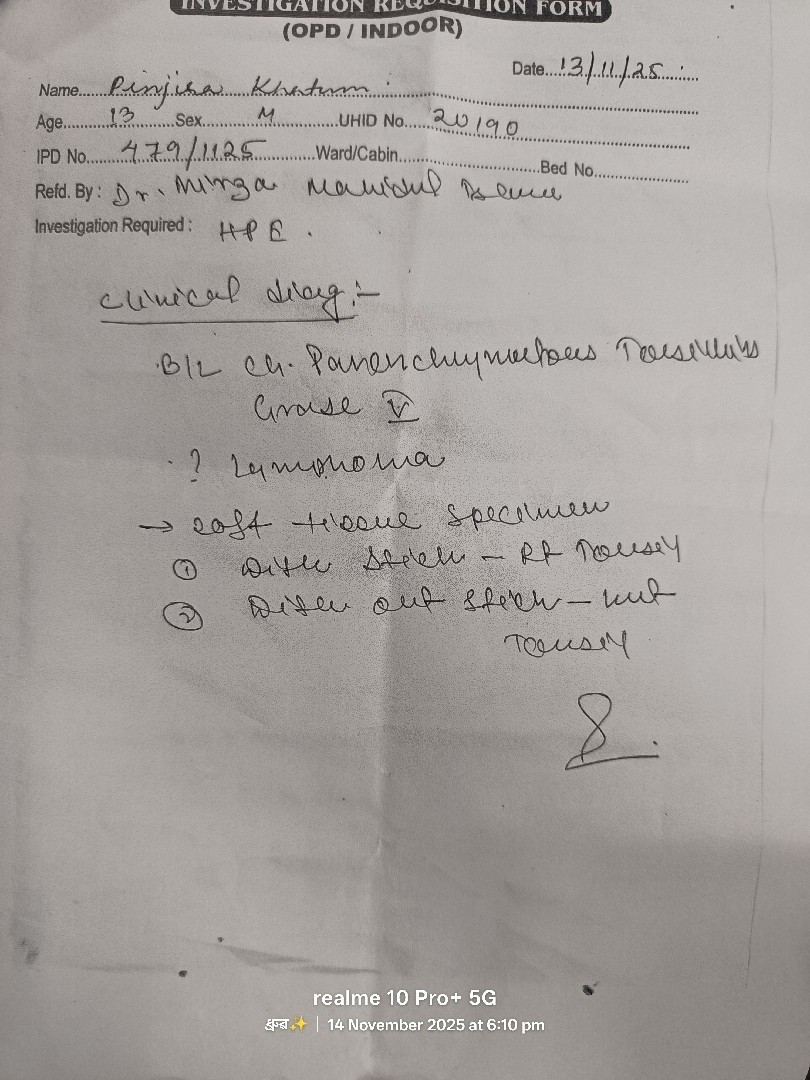 INVESTIGATION REQUISITION FORM
(OPD / INDOOR)
Date....13/11/25
Name......Pinjira Khatum
Age......13......Sex......M......UHID No...20190
IPD No......479/1125......Ward/Cabin......Bed No......
Refd. By : Dr. Mirza
Investigation Required : HPE .
Clinical diag :-
B/L Ch. Parenchymatous
V
? Lymphoma
→ soft tissue specimen
① stich - Rt Tonsil
② out stich -
Tonsil
realme 10 Pro+ 5G
ध्रुब✨ | 14 November 2025 at 6:10 pm